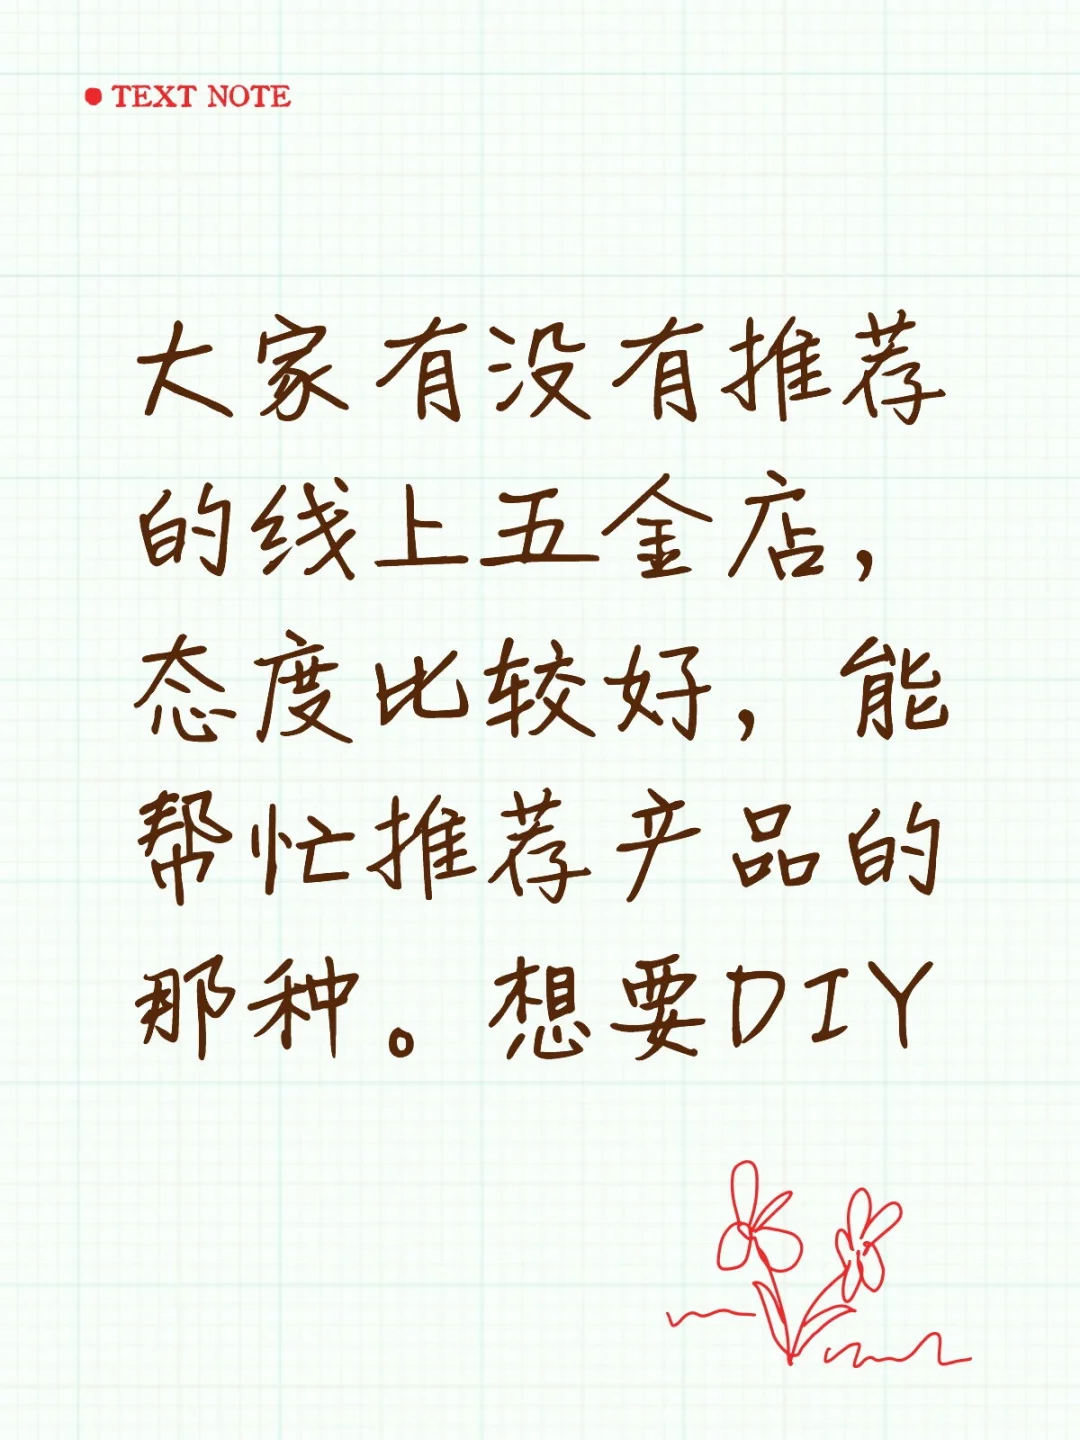 TEXT NOTE
大家有没有推荐
的线上五金店，
态度比较好，能
帮忙推荐产品的
那种。想要DIY